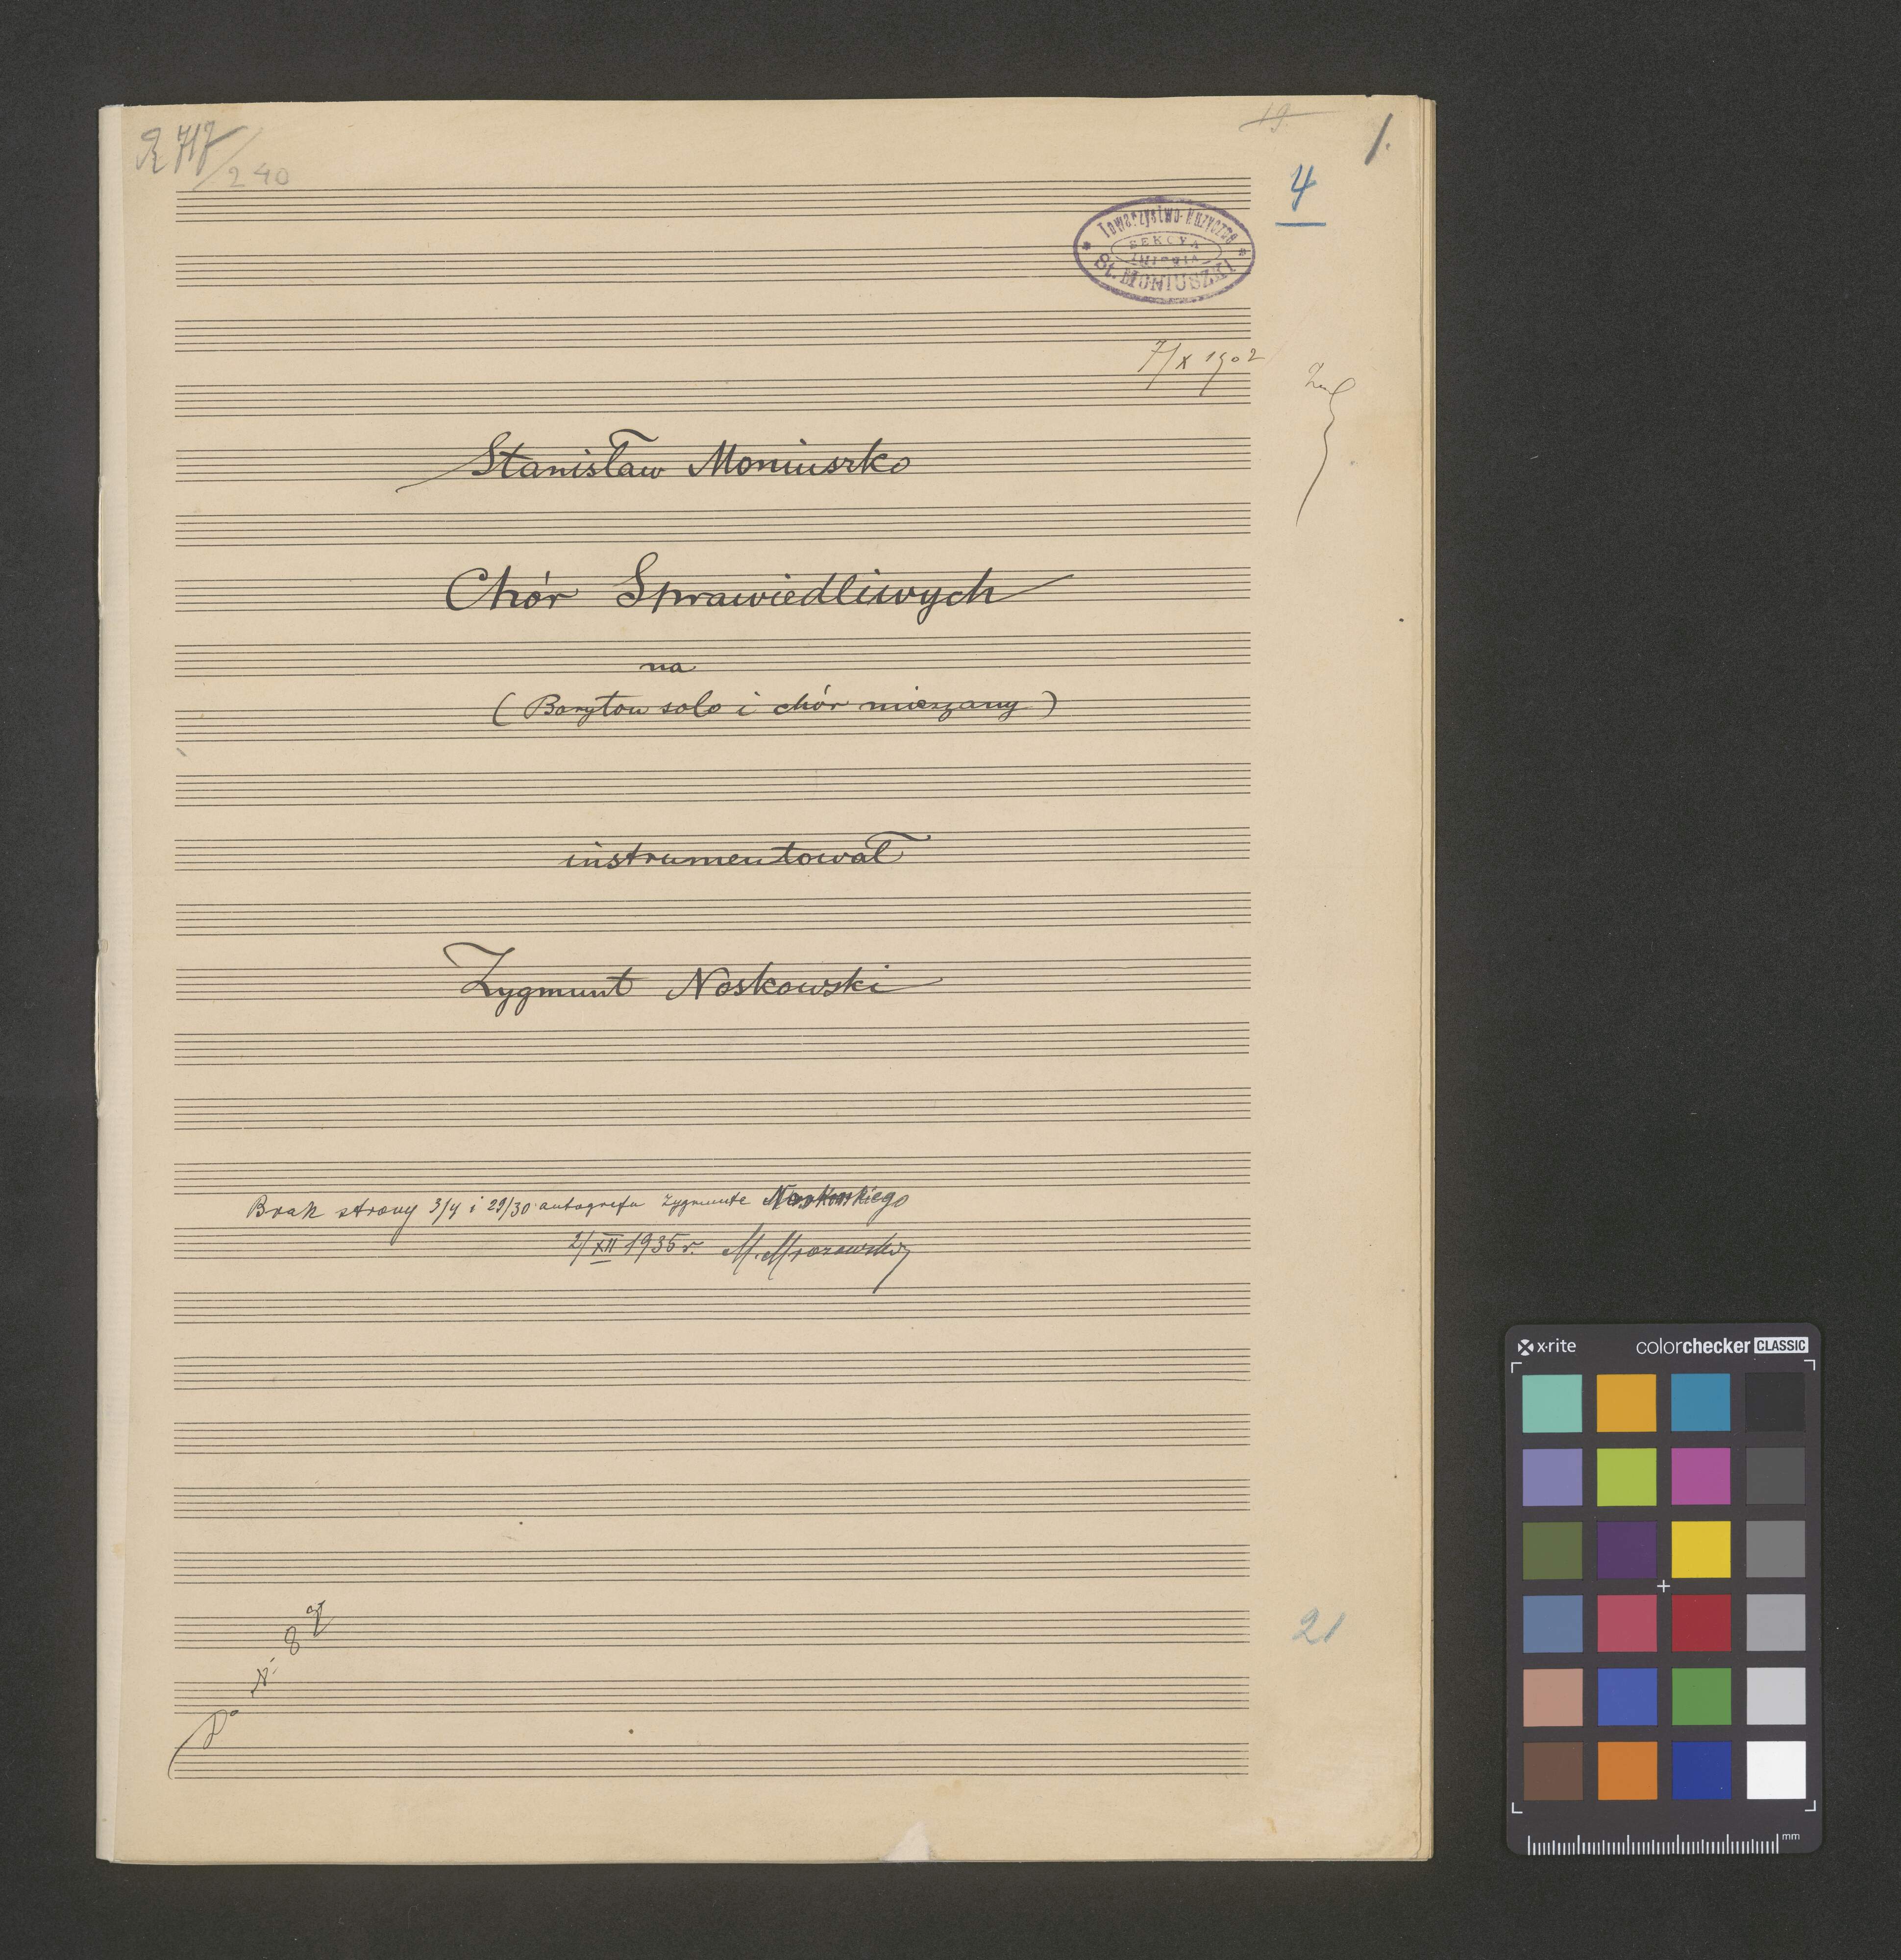 240
19.
1.
4
Towarzystwo Muzyczne
SEKCYA
imienia
St. MONIUSZKI
7/X 1902
Stanisław Moniuszko
Chór Sprawiedliwych
na
(Baryton solo i chór mieszany)
instrumentował
Zygmunt Noskowski
Brak strony 3/4 i 29/30 autografu Zygmunta Noskowskiego
2/XII 1935 r. M. Mrozowski
21
x-rite
colorchecker CLASSIC
mm